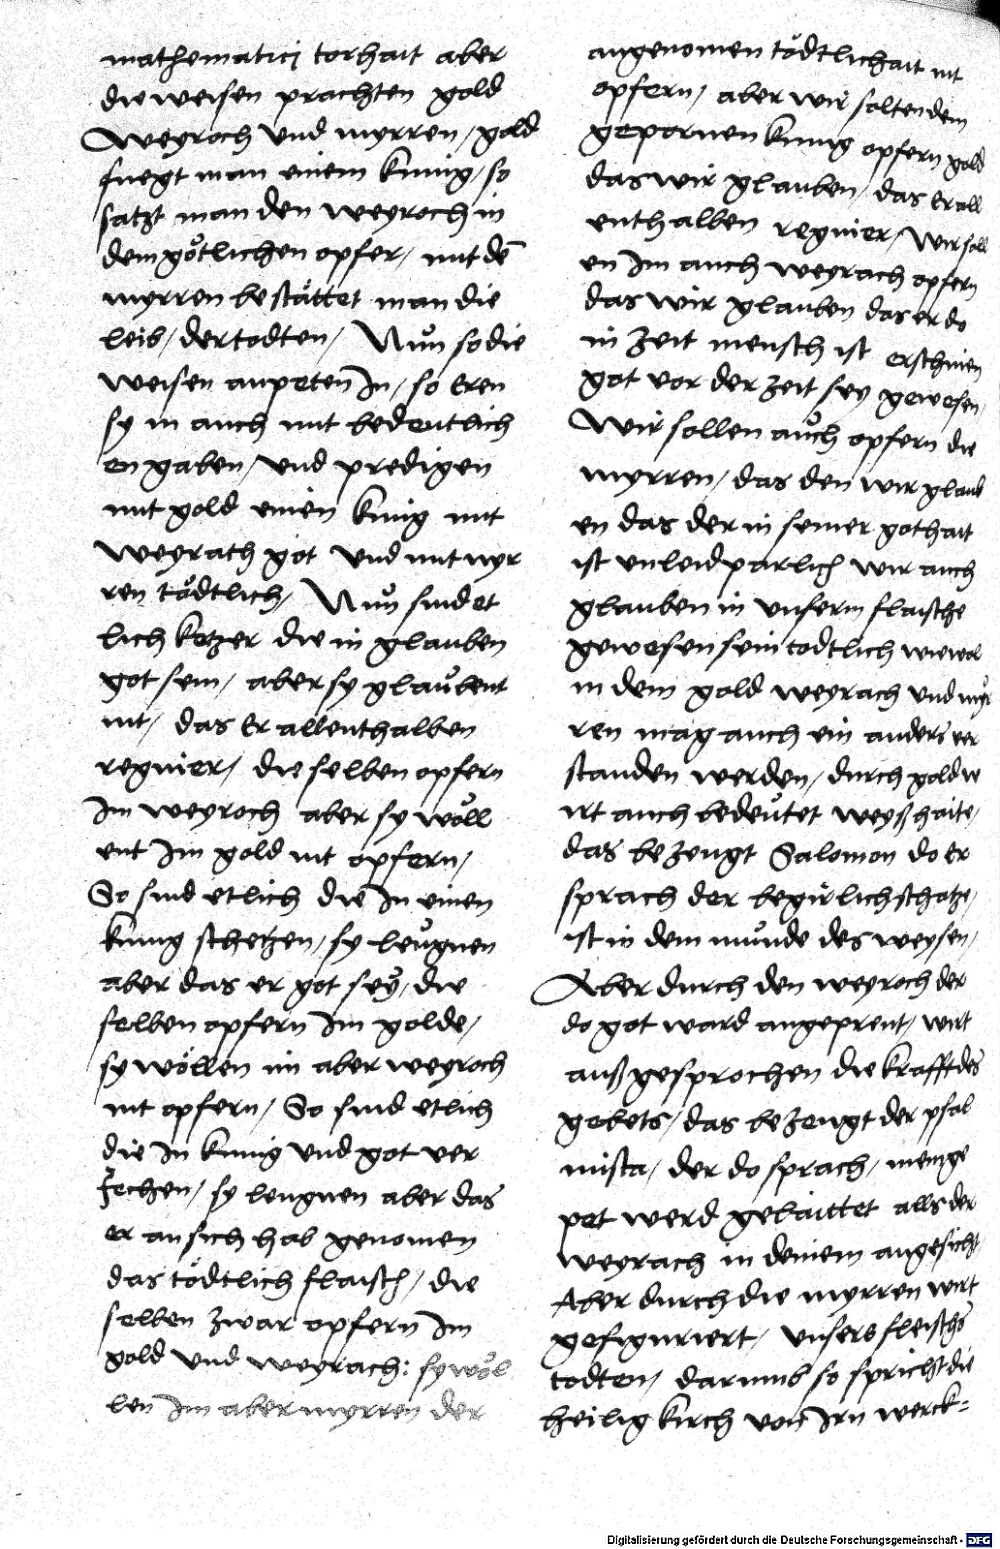 mathematici torhait aber
die weisen prachten gold
Weyroch vnd myrren / gold
fuegt man einem kunig / so
satzt man den weyroch in
dem götlichen opfer / mit dē
myrren bestättet man die
leib / der todten / Nun so die
weisen anpeten In / so Eren
sy in auch mit bedeutlich
en gaben / vnd predigen
mit gold einen kunig mit
weyrach got vnd mit myr
ren tödtlich / Nun sind et
lich ketzer die in glauben
got sein / aber sy glaubent
nit / das Er allenthalben
regnier / die selben opfern
Im weyroch aber sy wöll
ent Im gold nit opfern /
So sind etlich die In einen
kunig schetzen / sy leugnen
aber das er got sey / die
selben opfern Im golde /
sy wöllen im aber weyroch
nit opfern / So sind etlich
die In kunig vnd got ver
jechen / sy leugnen aber das
er an sich hab genomen
das tödtlich flaisch / die
selben zwar opfern Im
gold vnd weyrach: sy wöl
len Im aber myrren der
angenomen tödtlichait nit
opfern / aber wir solten dem
gepornen kunig opfern gold
das wir glauben / das Er all
enthalben regnier / Wir soll
en Im auch weyrach opfern
das wir glauben das er do
in zeit mensch ist erschinen
got vor der zeit sey gewesen /
Wir sollen auch opfern die
myrren / das den wir glaub
en das der in seiner gothait
ist vnleidparlich wir auch
glauben in vnserm flaische
gewesen sein todtlich wiewol
in dem gold weyrach vnd myr
ren mag auch ein anders ver
standen werden / durch gold w
irt auch bedeutet weyßhaite /
das bezeugt Salomon do Er
sprach der begirlich schatze /
ist in dem munde des weysen /
Aber durch den weyroch der
do got ward angeprent / wirt
auß gesprochen die krafft des
gebets / das bezeugt der psal
mista / der do sprach / meinge
pet werd gelaittet alls der
weyrach in deinem angesicht /
Aber durch die myrren wirt
gefiguriert / vnsers fleischs
todten / darumb so spricht die
heilig kirch von Irn werck=
Digitalisierung gefördert durch die Deutsche Forschungsgemeinschaft - DFG